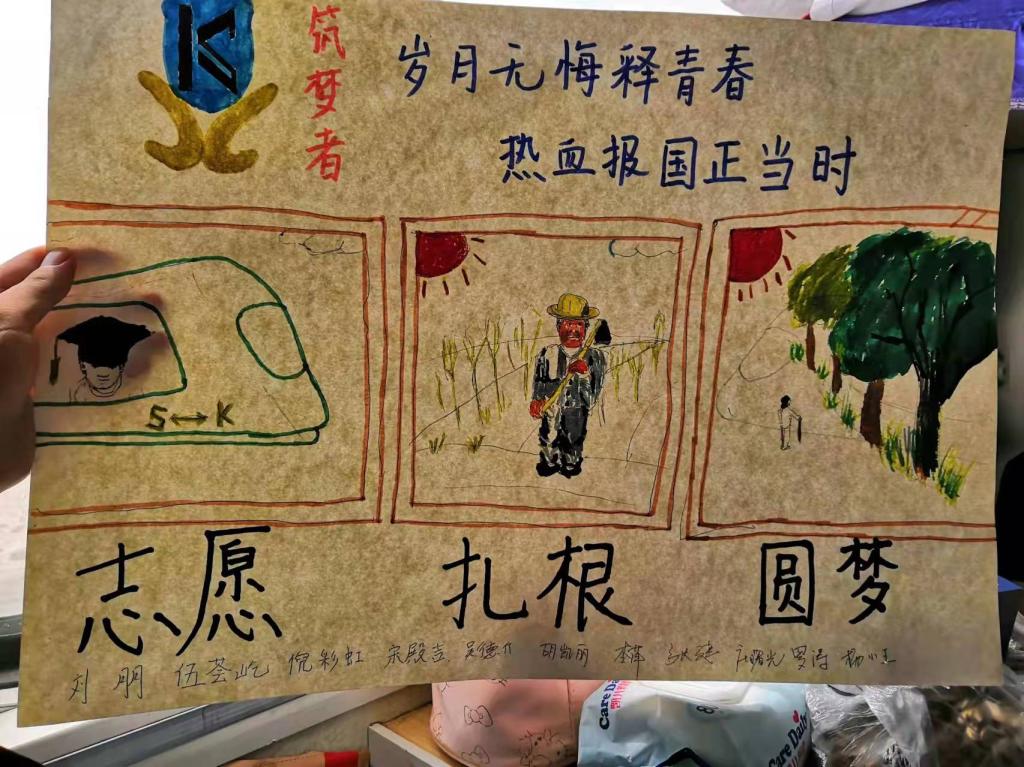 K
筑梦者
岁月无悔释青春
热血报国正当时
S↔K
志愿 扎根 圆梦
刘朋 伍荟屹 倪彩虹 宋殿吉 吴德 胡凯丽 李 曙光 罗涛 杨小
Care Daily
Care Daily